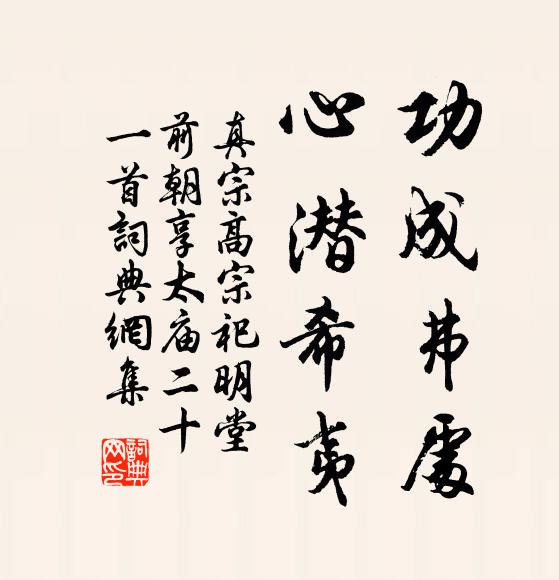 功成弗處
心潜希夷
真宗高宗祀明堂
前朝享太庙二十
一首詞典網集
詞典
网印